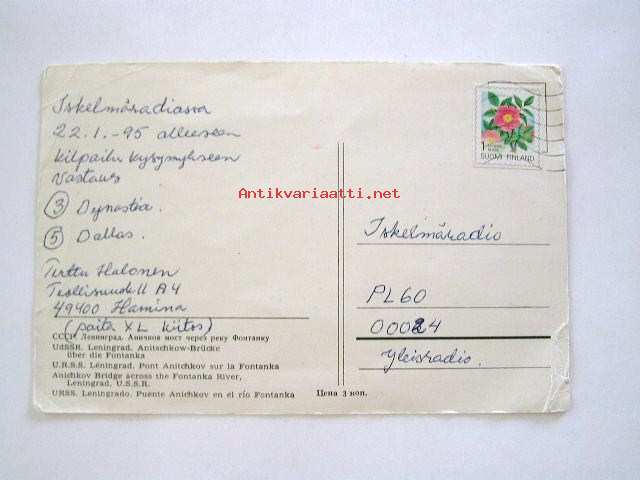 Iskelmäradiossa
22.1.-95 olleeseen
kilpailu kysymykseen
vastaus
③ Dynastia.
⑤ Dallas.
Terttu Halonen
49400 Hamina
(paita XL kiitos)
СССР. Ленинград. Аничков мост через реку Фонтанку
UdSSR. Leningrad. Anitschkow-Brücke
über die Fontanka
U.R.S.S. Léningrad. Pont Anitchkov sur la Fontanka
Anichkov Bridge across the Fontanka River,
Leningrad, U.S.S.R.
URSS. Leningrado. Puente Anichkov en el río Fontanka
Цена 3 коп.
1
SUOMI FINLAND
Antikvariaatti.net
Iskelmäradio
PL 60
00024
Yleisradio.